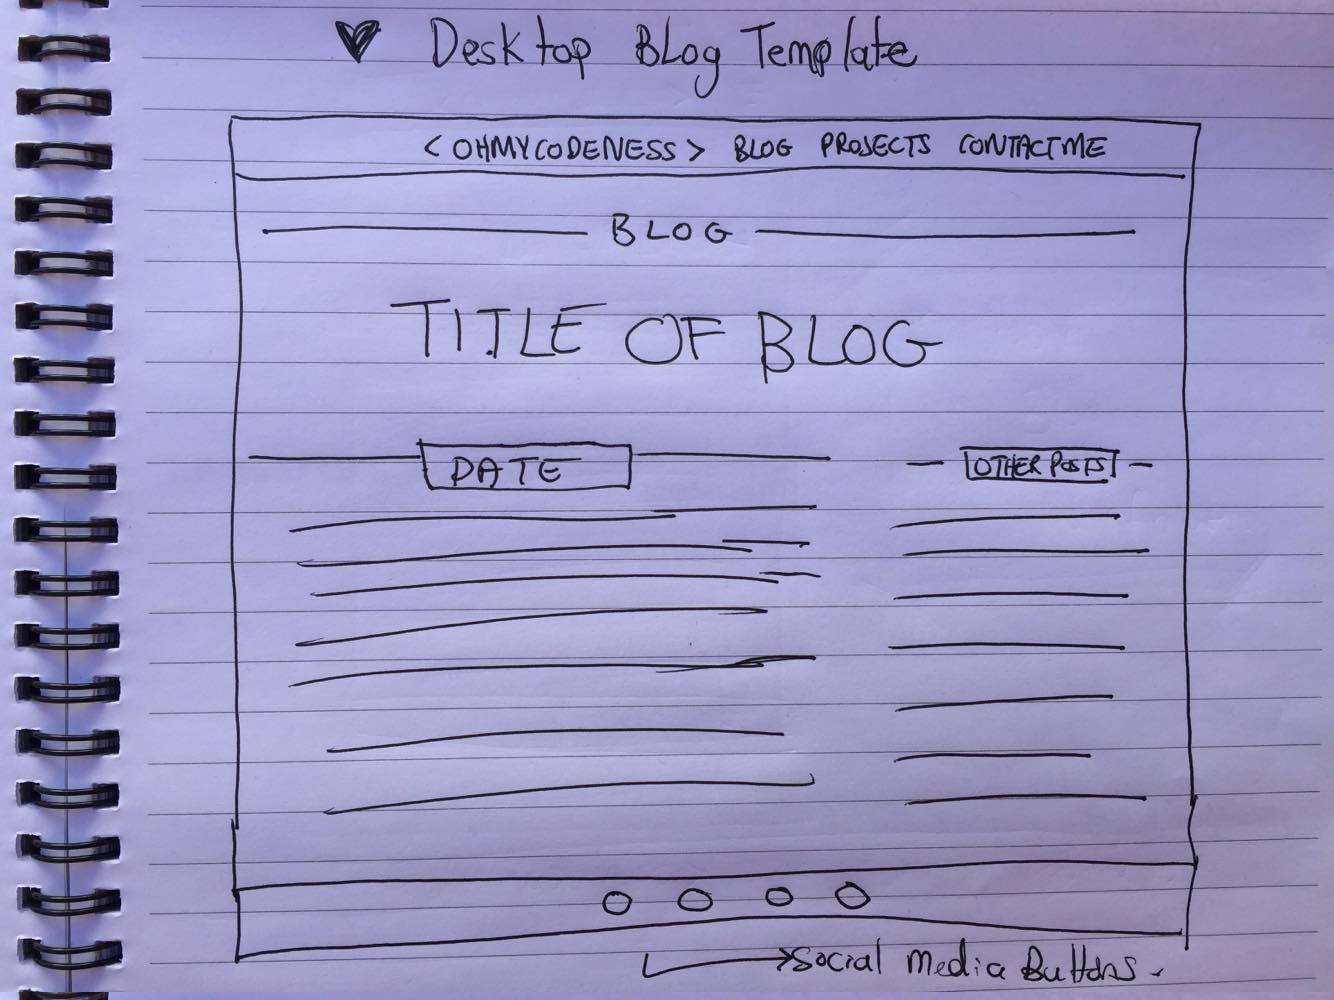 Desktop Blog Template
<OHMYCODENESS> BLOG PROJECTS CONTACT ME
BLOG
TITLE OF BLOG
DATE
OTHER POSTS
Social Media Buttons.